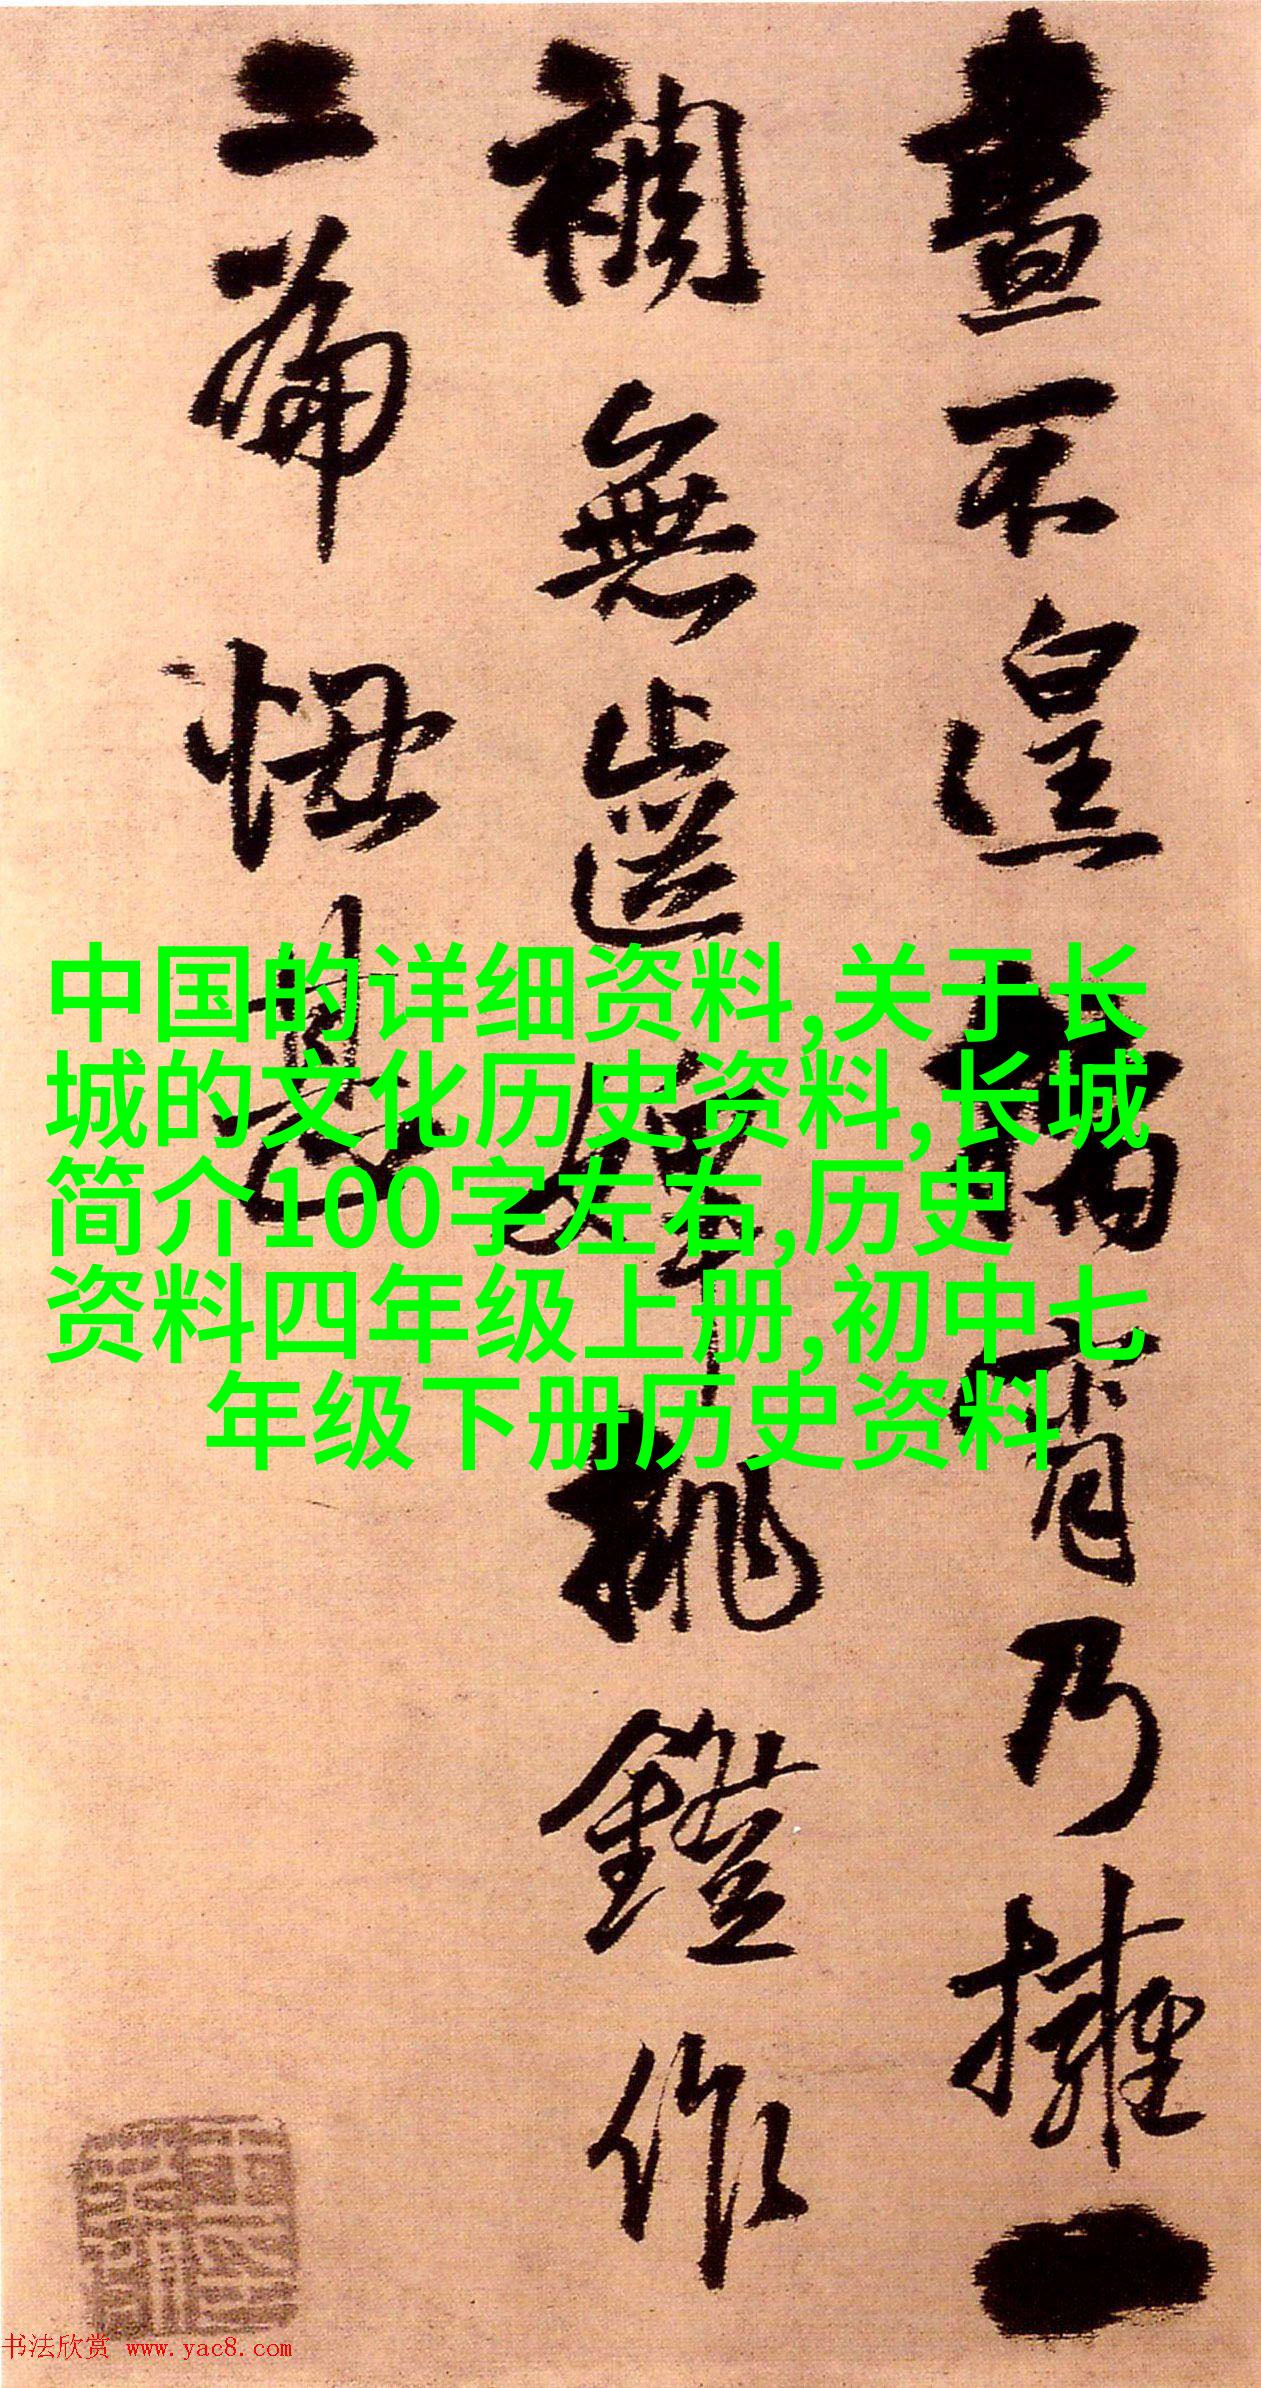 晝不遑揥宵乃擁一
裯無齒婢挑鐙作
二篇悟墓
中国的详细资料,关于长
城的文化历史资料,长城
简介100字左右,历史
资料四年级上册,初中七
年级下册历史资料
书法欣赏 www.yac8.com